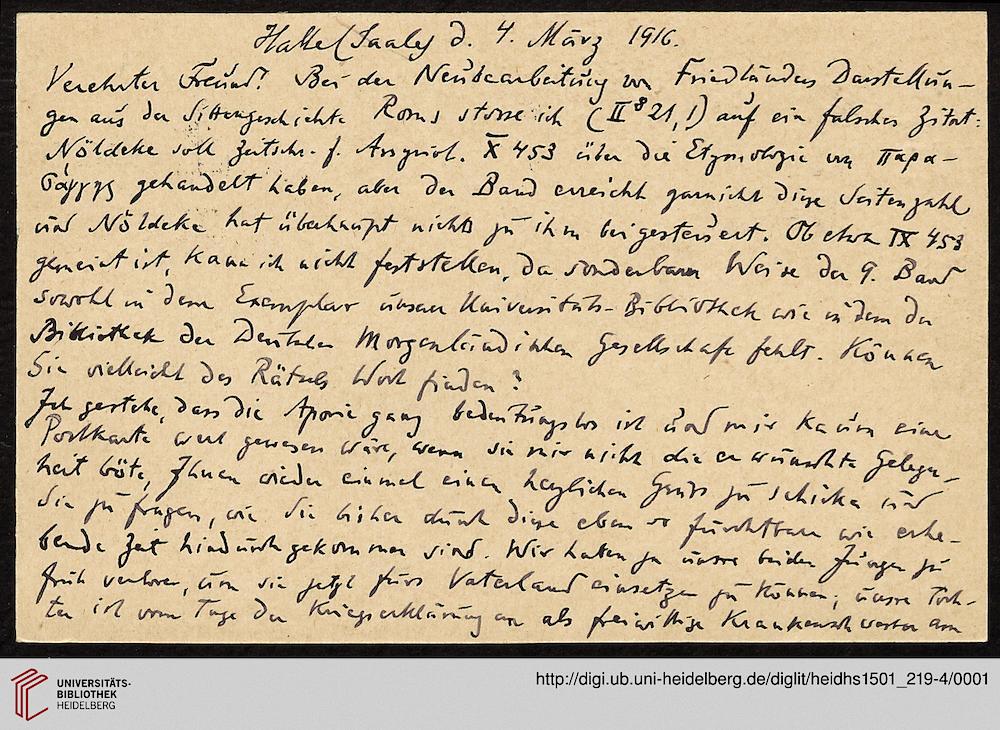 Halle (Saale) d. 4. März 1916.
Verehrter Freund! Bei der Neubearbeitung von Friedländers Darstellun-
gen aus der Sittengeschichte Roms stosse ich (II⁸ 21, 1) auf ein falsches Zitat:
Nöldeke soll Zeitschr. f. Assyriol. X 453 über die Etymologie von παρα-
σάγγης gehandelt haben, aber der Band erreicht garnicht diese Seitenzahl
und Nöldeke hat überhaupt nichts zu ihm beigesteuert. Ob etwa IX 453
gemeint ist, kann ich nicht feststellen, da sonderbarer Weise der 9. Band
sowohl in dem Exemplar unserer Universitäts-Bibliothek wie in dem der
Bibliothek der Deutschen Morgenländischen Gesellschaft fehlt. Können
Sie vielleicht des Rätsels Wort finden?
Ich gestehe, dass die Aporie ganz bedeutungslos ist und mir kaum eine
Postkarte wert gewesen wäre, wenn sie mir nicht die erwünschte Gelegen-
heit böte, Ihnen wieder einmal einen herzlichen Gruss zu schicken und
Sie zu fragen, wie Sie bisher durch diese eben so furchtbare wie erhe-
bende Zeit hindurchgekommen sind. Wir haben ja unsre beiden Jungen zu
früh verloren, um sie jetzt fürs Vaterland einsetzen zu können; unsre Toch-
ter ist vom Tage der Kriegserklärung an als freiwillige Krankenschwester am
UNIVERSITÄTS-
BIBLIOTHEK
HEIDELBERG
http://digi.ub.uni-heidelberg.de/diglit/heidhs1501_219-4/0001